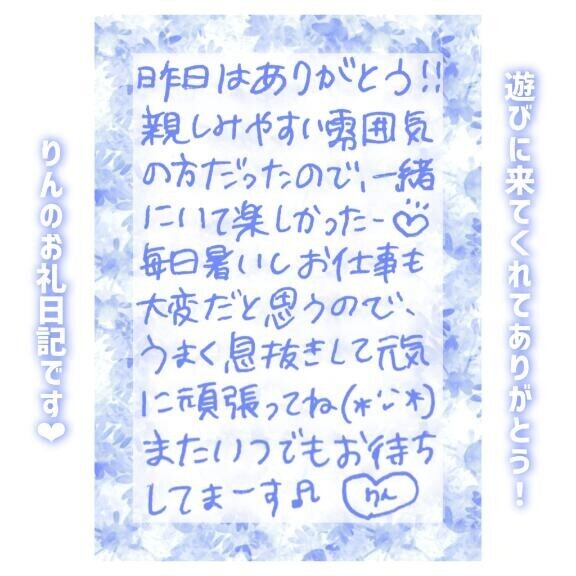 遊びに来てくれてありがとう!
昨日はありがとう!!
親しみやすい雰囲気
の方だったので、一緒
にいて楽しかったー♡
毎日暑いしお仕事も
大変だと思うので、
うまく息抜きして元気
に頑張ってね(*'ᵕ'*)
またいつでもお待ち
してまーす♫ りん
りんのお礼日記です❤